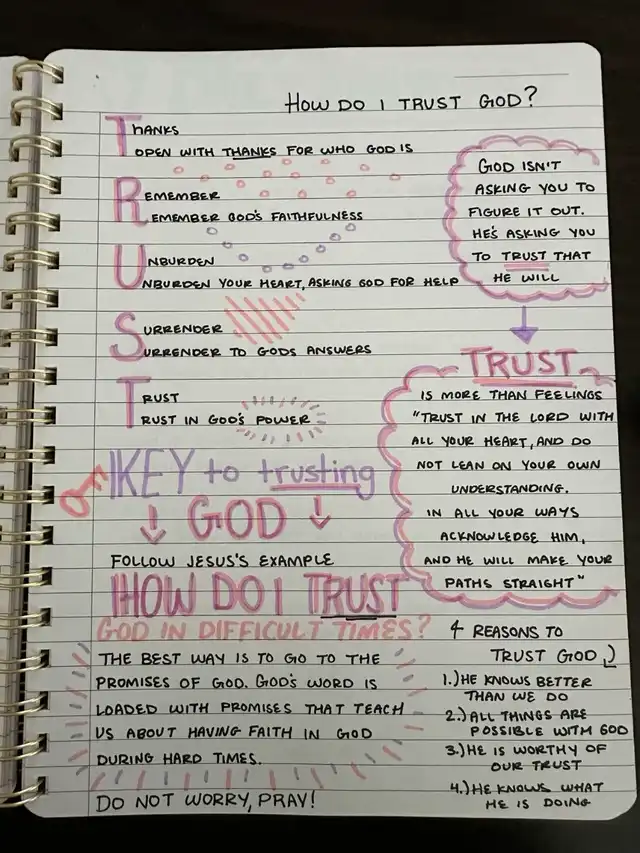 HOW DO I TRUST GOD?
THANKS
OPEN WITH THANKS FOR WHO GOD IS
REMEMBER
REMEMBER GOD'S FAITHFULNESS
UNBURDEN
UNBURDEN YOUR HEART, ASKING GOD FOR HELP
SURRENDER
SURRENDER TO GODS ANSWERS
TRUST
TRUST IN GOD'S POWER
KEY to trusting
GOD
FOLLOW JESUS'S EXAMPLE
HOW DO I TRUST
GOD IN DIFFICULT TIMES?
THE BEST WAY IS TO GO TO THE
PROMISES OF GOD. GOD'S WORD IS
LOADED WITH PROMISES THAT TEACH
US ABOUT HAVING FAITH IN GOD
DURING HARD TIMES.
DO NOT WORRY, PRAY!
GOD ISN'T
ASKING YOU TO
FIGURE IT OUT.
HE'S ASKING YOU
TO TRUST THAT
HE WILL
TRUST
IS MORE THAN FEELINGS
"TRUST IN THE LORD WITH
ALL YOUR HEART, AND DO
NOT LEAN ON YOUR OWN
UNDERSTANDING.
IN ALL YOUR WAYS
ACKNOWLEDGE HIM,
AND HE WILL MAKE YOUR
PATHS STRAIGHT"
4 REASONS TO
TRUST GOD
1.) HE KNOWS BETTER
THAN WE DO
2.) ALL THINGS ARE
POSSIBLE WITH GOD
3.) HE IS WORTHY OF
OUR TRUST
4.) HE KNOWS WHAT
HE IS DOING